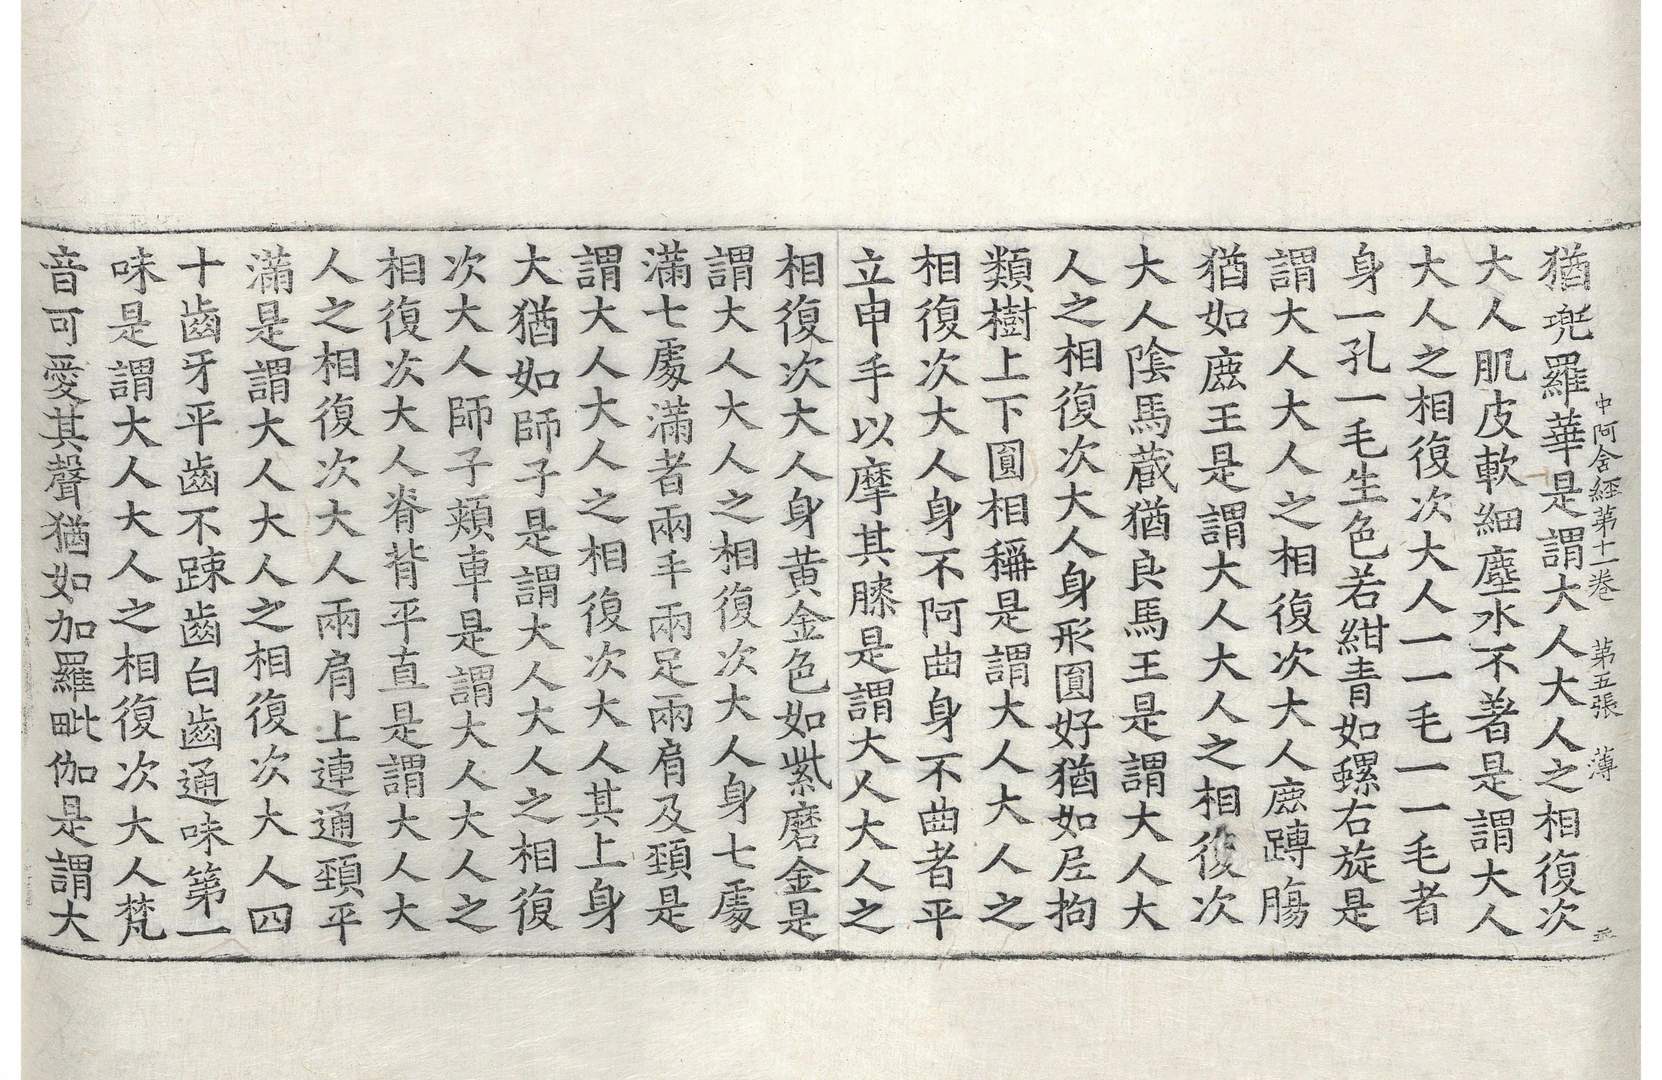 中阿含經第十一卷 第五張 薄
猶兜羅華是謂大人大人之相復次
大人肌皮軟細塵水不著是謂大人
大人之相復次大人一一毛一一毛者
身一孔一毛生色若紺青如螺右旋是
謂大人大人之相復次大人鹿蹲腸
猶如鹿王是謂大人大人之相復次
大人陰馬藏猶良馬王是謂大人大
人之相復次大人身形圓好猶如尼拘
類樹上下圓相稱是謂大人大人之
相復次大人身不阿曲身不曲者平
立申手以摩其膝是謂大人大人之
相復次大人身黃金色如紫磨金是
謂大人大人之相復次大人身七處
滿七處滿者兩手兩足兩肩及頸是
謂大人大人之相復次大人其上身
大猶如師子是謂大人大人之相復
次大人師子頰車是謂大人大人之
相復次大人脊背平直是謂大人大
人之相復次大人兩肩上連通頸平
滿是謂大人大人之相復次大人四
十齒牙平齒不踈齒白齒通味第一
味是謂大人大人之相復次大人梵
音可愛其聲猶如加羅毗伽是謂大